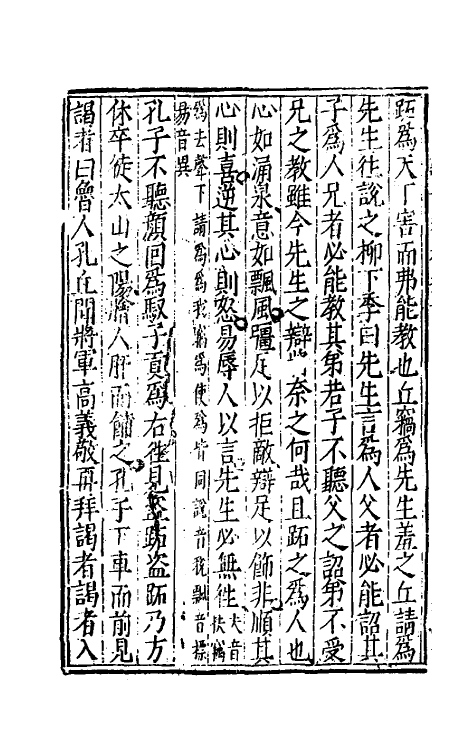 跖爲天下害而弗能教也丘竊爲先生羞之丘請爲
先生往說之柳下季曰先生言爲人父者必能詔其
子爲人兄者必能教其弟若子不聽父之詔弟不受
兄之教雖今先生之辯將奈之何哉且跖之爲人也
心如涌泉意如飄風彊足以拒敵辯足以飾非順其
心則喜逆其心則怒易辱人以言先生必無徃夫音扶竊
爲去聲下請爲爲我竊爲使爲皆同說音稅飄音摽
易音異
孔子不聽顔回爲馭子貢爲右徃見盜跖盜跖乃方
休卒徒太山之陽膾人肝而餔之孔子下車而前見
謁者曰魯人孔丘聞將軍高義敬再拜謁者謁者入